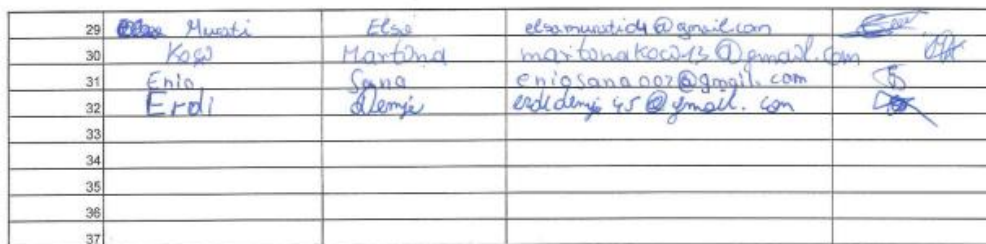 29 Muesti Elsa elsamuesti04@gmail.com
30 Koço Martina martonakoco13@gmail.com
31 Enio Sana eniosana007@gmail.com
32 Erdi Demje erdidemje45@gmail.com
33
34
35
36
37